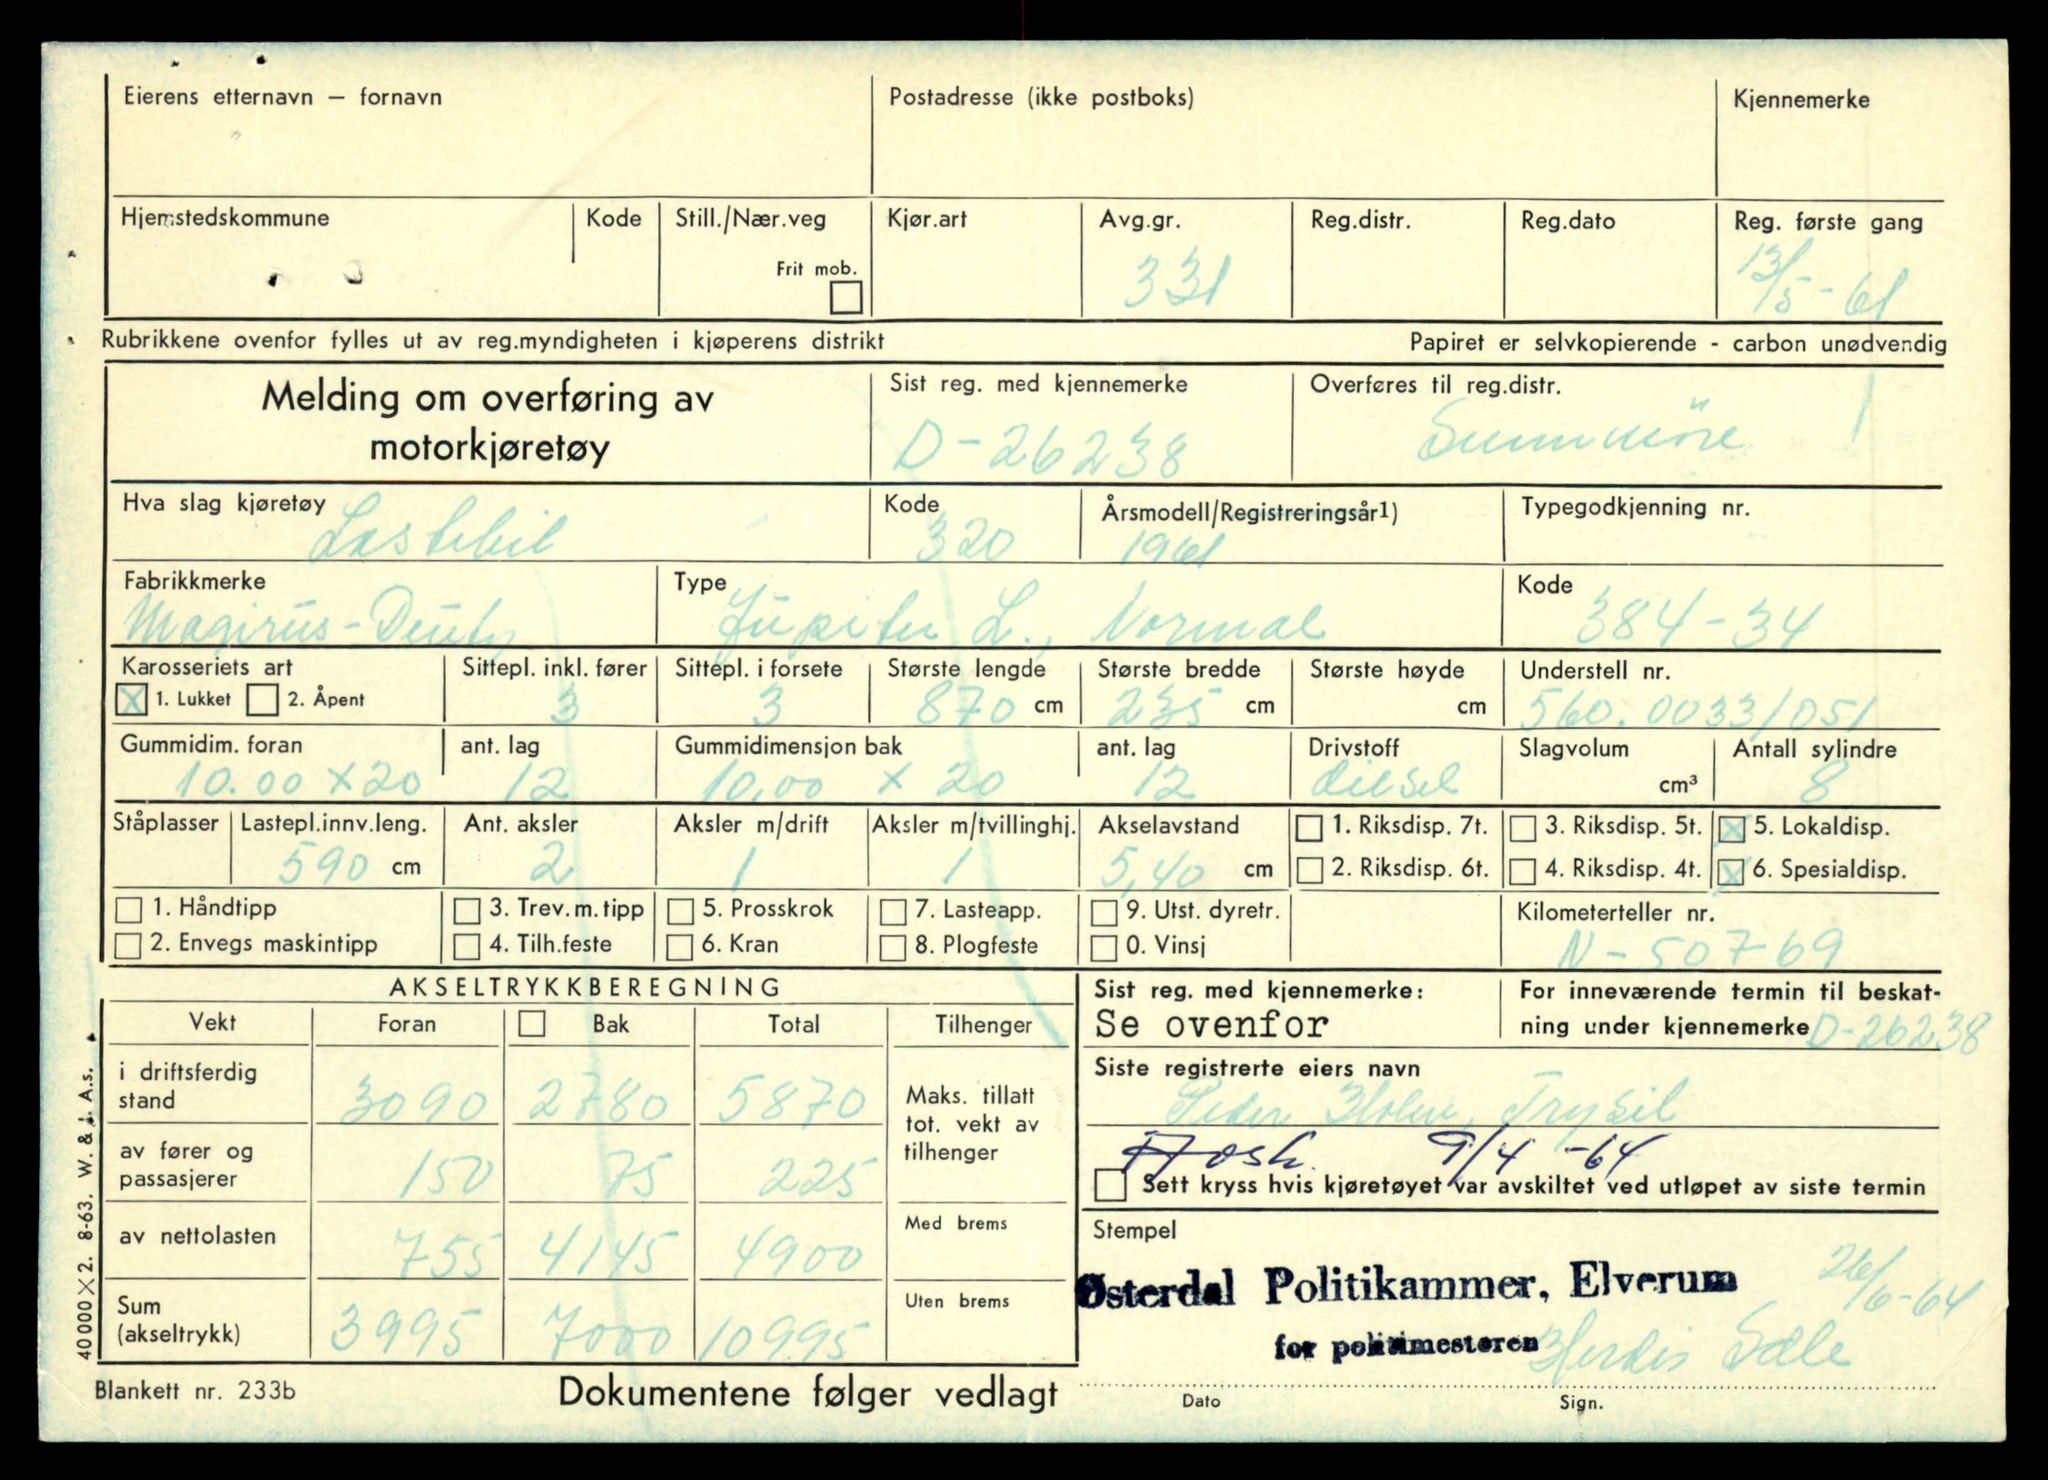 Eierens etternavn — fornavn
Postadresse (ikke postboks)
Kjennemerke
Hjemstedskommune
Kode
Still./Nær.veg
Frit mob.
Kjør.art
Avg.gr.
331
Reg.distr.
Reg.dato
Reg. første gang
13/5-61
Rubrikkene ovenfor fylles ut av reg.myndigheten i kjøperens distrikt
Papiret er selvkopierende - carbon unødvendig
Melding om overføring av
motorkjøretøy
Sist reg. med kjennemerke
D-26238
Overføres til reg.distr.
Sunnmöre
Hva slag kjøretøy
Lastebil
Kode
320
Årsmodell/Registreringsår1)
1961
Typegodkjenning nr.
Fabrikkmerke
Magirus-Deutz
Type
Jupiter L., Normal
Kode
384-34
Karosseriets art
X 1. Lukket 2. Åpent
Sittepl. inkl. fører
3
Sittepl. i forsete
3
Største lengde
870 cm
Største bredde
235 cm
Største høyde
cm
Understell nr.
560.0033/051
Gummidim. foran
10.00 x 20
ant. lag
12
Gummidimensjon bak
10,00 x 20
ant. lag
12
Drivstoff
diesel
Slagvolum
cm³
Antall sylindre
8
Ståplasser
Lastepl.innv.leng.
590 cm
Ant. aksler
2
Aksler m/drift
1
Aksler m/tvillinghj.
1
Akselavstand
5,40 cm
1. Riksdisp. 7t.
2. Riksdisp. 6t.
3. Riksdisp. 5t.
4. Riksdisp. 4t.
X 5. Lokaldisp.
X 6. Spesialdisp.
1. Håndtipp
2. Envegs maskintipp
3. Trev.m.tipp
4. Tilh.feste
5. Prosskrok
6. Kran
7. Lasteapp.
8. Plogfeste
9. Utst. dyretr.
0. Vinsj
Kilometerteller nr.
N-50769
AKSELTRYKKBEREGNING
Vekt Foran Bak Total Tilhenger
i driftsferdig
stand
3090 2780 5870
av fører og
passasjerer
150 75 225
av nettolasten
755 4145 4900
Sum
(akseltrykk)
3995 7000 10995
Maks. tillatt
tot. vekt av
tilhenger
Med brems
Uten brems
Sist reg. med kjennemerke:
Se ovenfor
For inneværende termin til beskat-
ning under kjennemerke D-26238
Siste registrerte eiers navn
Peder Holm, Trysil
9/4 -64
Sett kryss hvis kjøretøyet var avskiltet ved utløpet av siste termin
Stempel
Østerdal Politikammer, Elverum
for politimesteren
26/6-64
Herdis Sæle
Dato
Sign.
40000 X 2. 8-63. W. & J. A.s.
Blankett nr. 233b
Dokumentene følger vedlagt